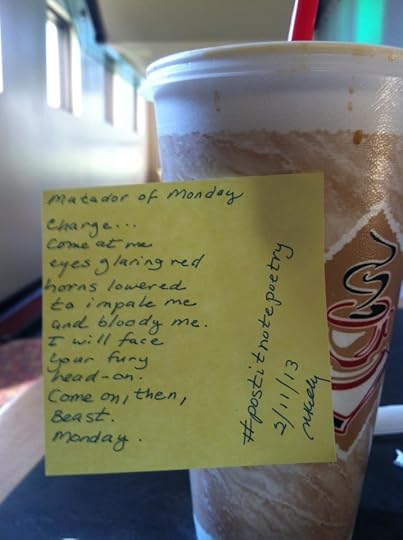 Matador of Monday
Charge...
Come at me
eyes glaring red
horns lowered
to impale me
and bloody me.
I will face
your fury
head-on.
Come on, then,
Beast.
Monday.
#postitnotepoetry
2/11/13